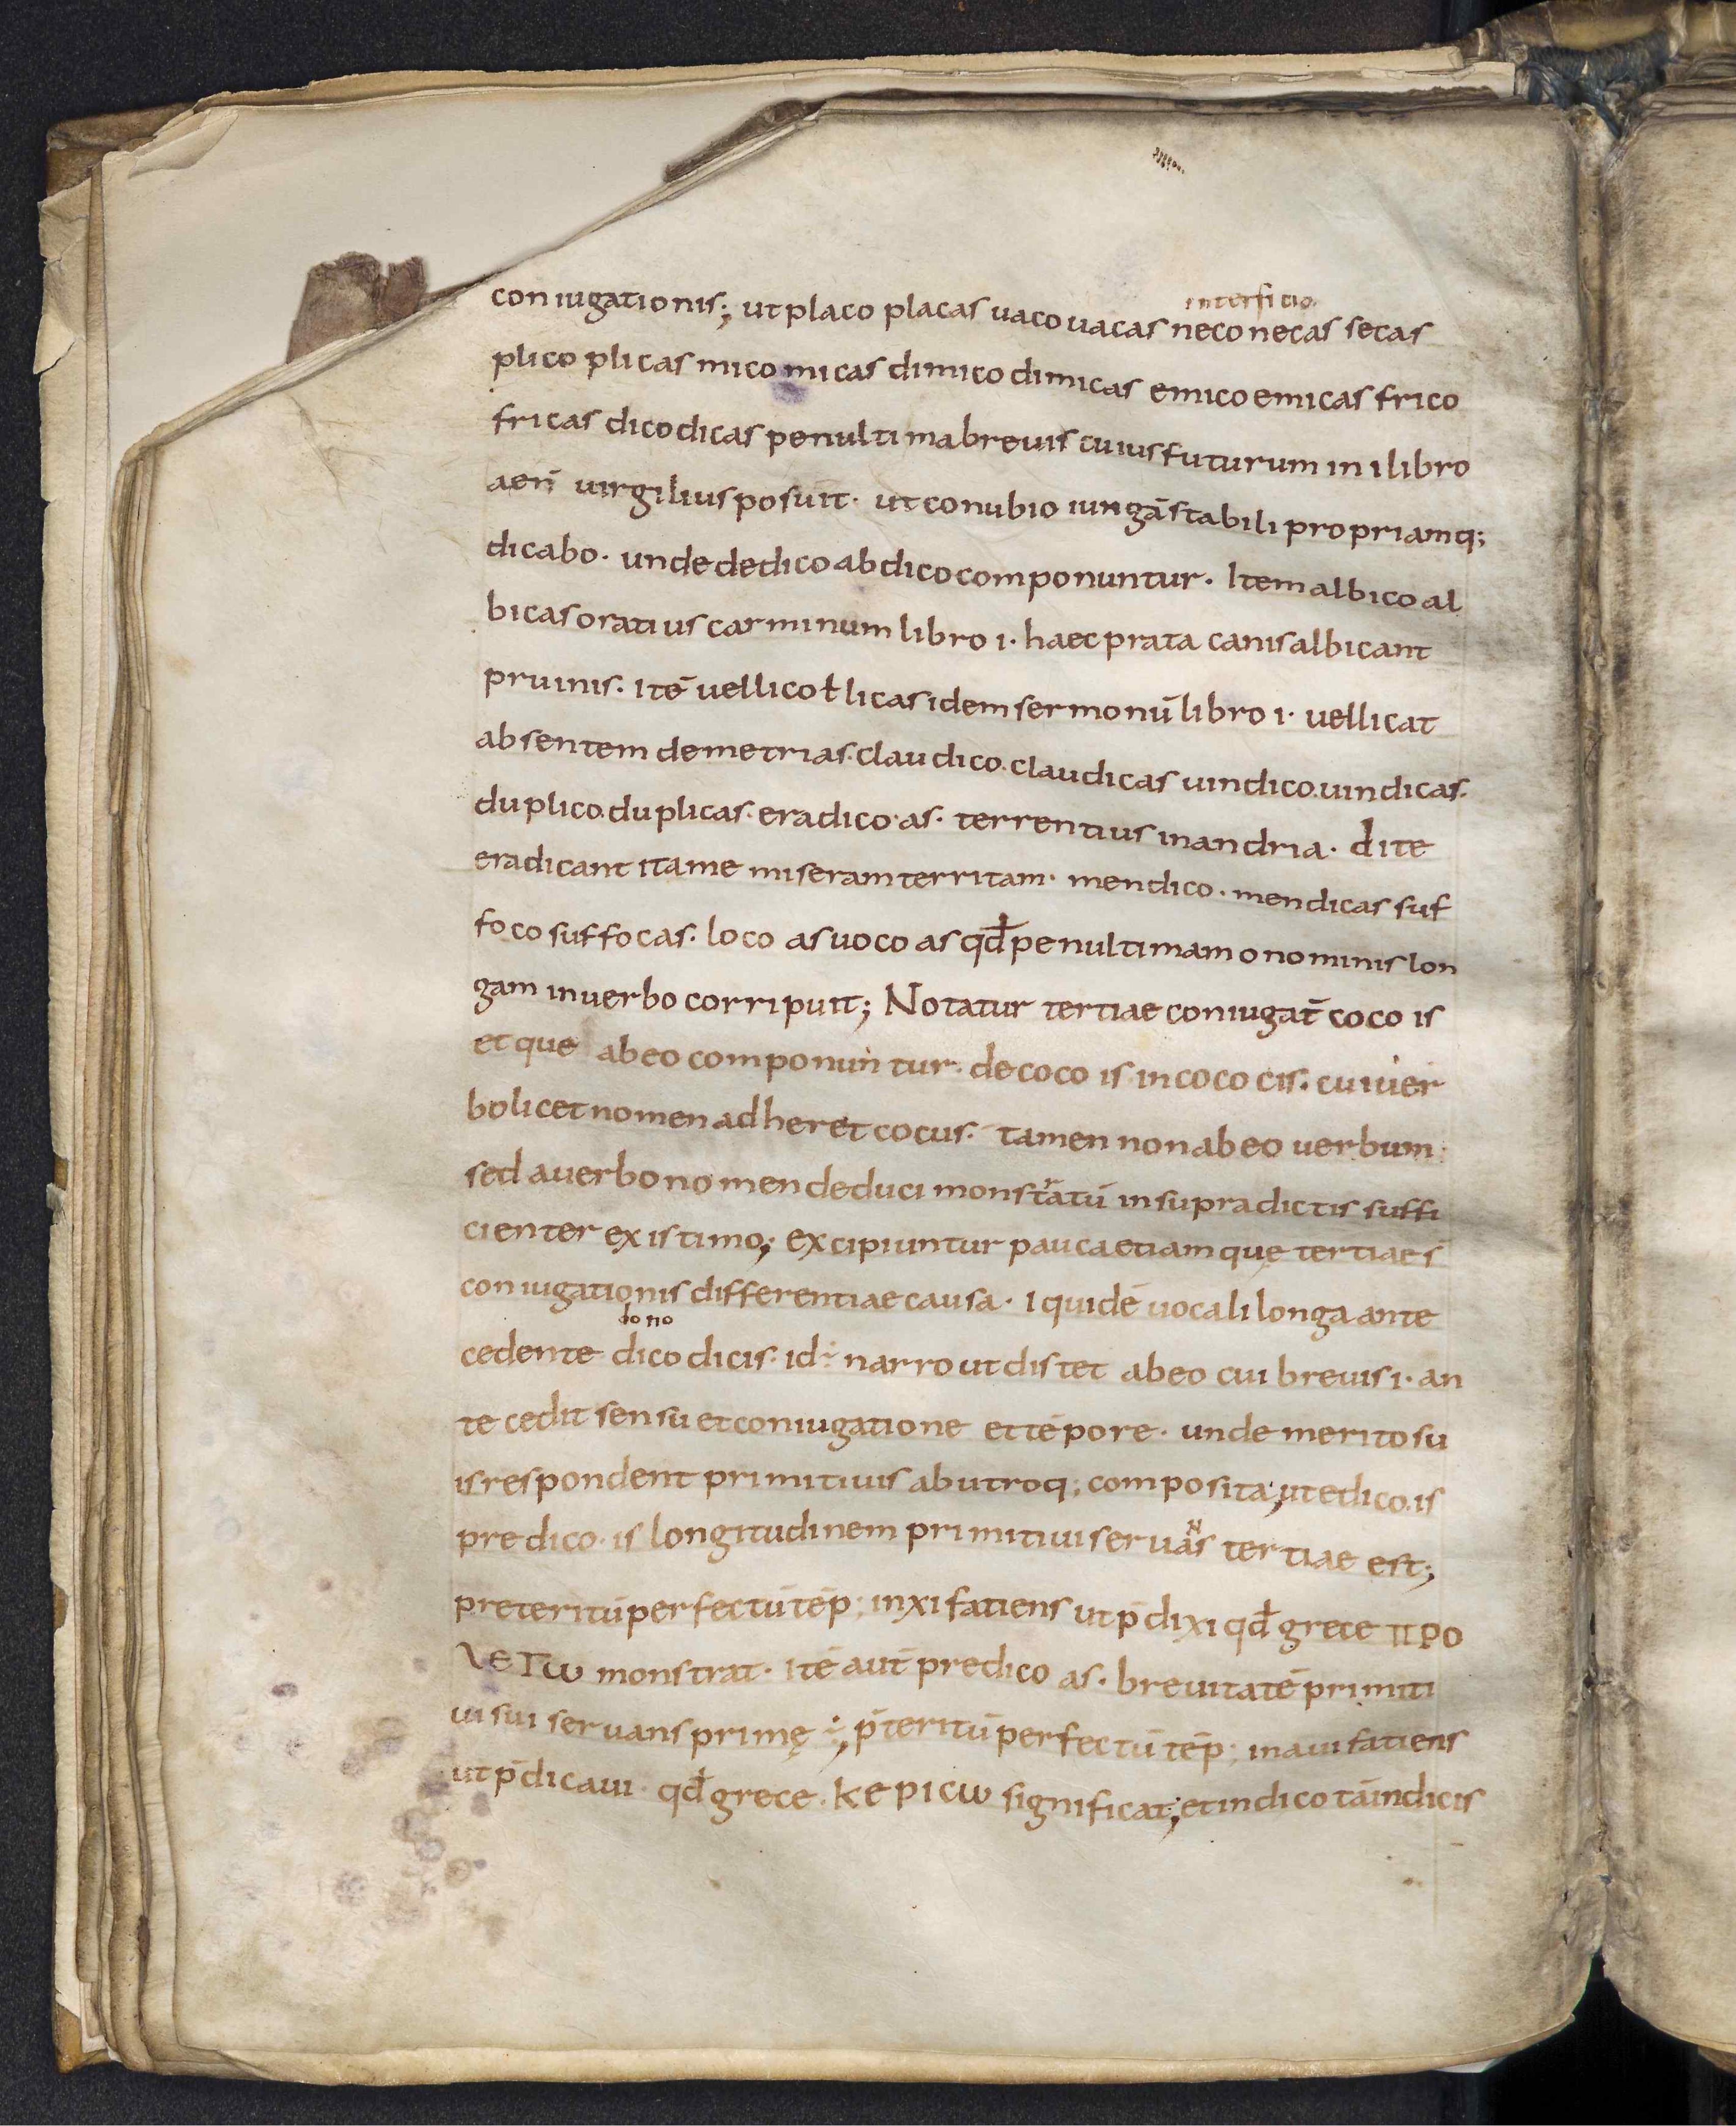 interficio
coniugationis; ut placo placas uaco uacas neco necas secas
plico plicas mico micas dimico dimicas emico emicas frico
fricas dico dicas penultima breuis cuius futurum in i libro
aen̄ uirgilius posuit· ut conubio iungā stabili propriamq;
dicabo· unde dedico abdico componuntur· Item albico al
bicas oratius carminum libro i· haec prata canis albicant
pruinis· itē uellico ł licas idem sermonū libro i· uellicat
absentem demetrias· claudico· claudicas uindico· uindicas·
duplico· duplicas· eradico· as· terrentius in andria· di te
eradicant ita me miseram territam· mendico· mendicas suf
foco suffocas· loco as uoco as qđ penultimam o nominis lon
gam in uerbo corripuit; Notatur tertiae coniugat̄ coco is
et que ab eo componuntur· decoco is incoco cis· cui uer
bo licet nomen adheret cocus· tamen non ab eo uerbum
sed a uerbo nomen deduci monstratū in supradictis suffi
cienter existimo; excipiuntur pauca etiam quę tertiae s̄
coniugationis differentiae causa· I quidē uocali longa ante
dono
cedente dico dicis· id ÷ narro ut distet ab eo cui breuis i· an
tecedit sensu et coniugatione et tēpore· unde merito su
is respondent primitiuis ab utroq; composita; ut edico· is
N
predico· is longitudinem primitiui seruas tertiae est;
preteritū perfectū tēp; in xi fatiens ut p̄dixi qđ grece ΠΡΟ
λεΓω monstrat· itē aut̄ predico as· breuitatē primiti
ui sui seruans primę ÷; p̄teritū perfectū tēp; in aui fatiens
ut p̄dicaui· qđ grece· κεριcω significat; et indico tā indicis